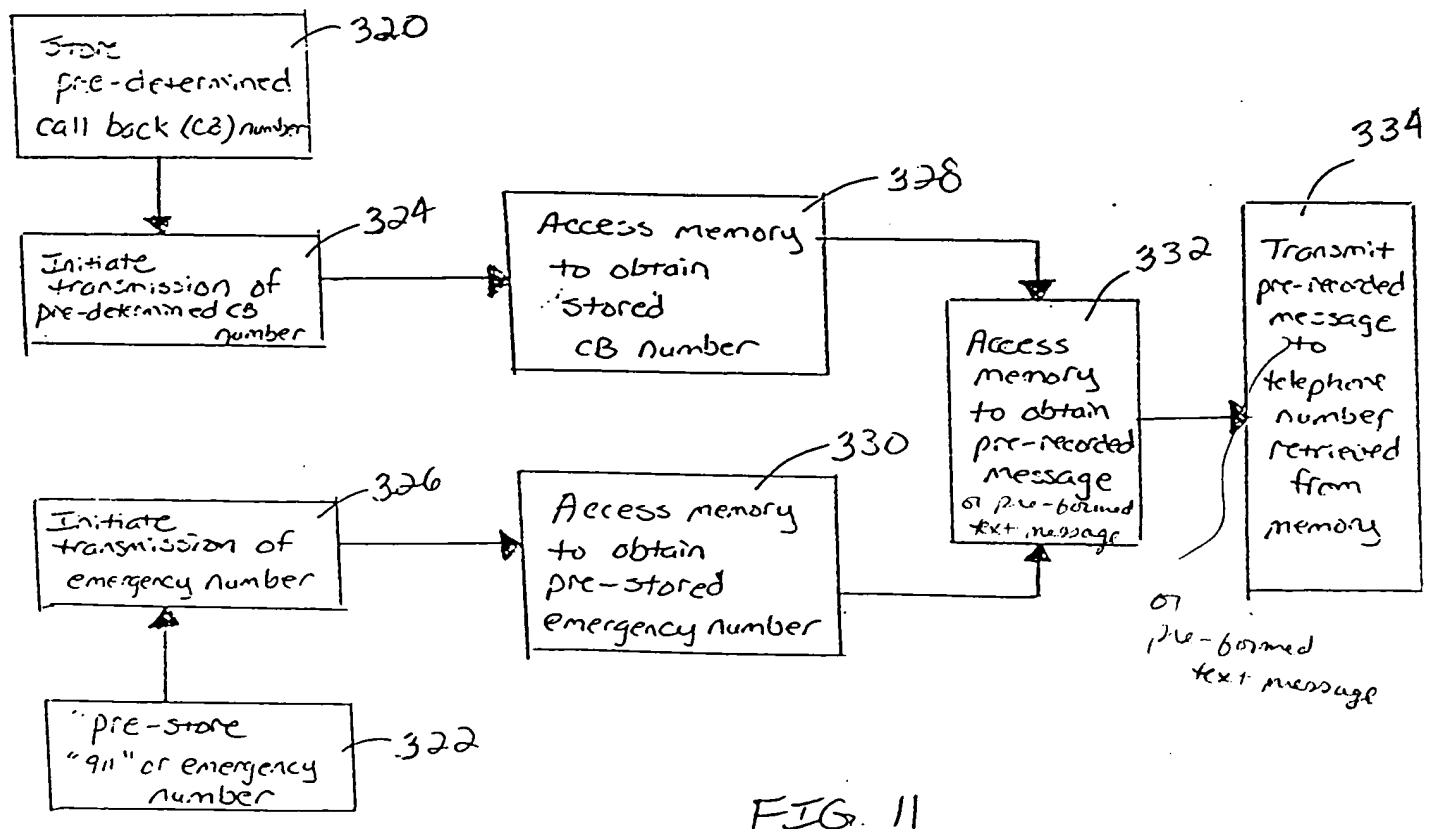 320
Store
pre-determined
call back (CB) number
324
Initiate
transmission of
pre-determined CB
number
328
Access memory
to obtain
stored
CB number
332
Access
memory
to obtain
pre-recorded
message
or pre-formed
text message
334
Transmit
pre-recorded
message
to
telephone
number
retrieved
from
memory
or
pre-formed
text message
326
Initiate
transmission of
emergency number
330
Access memory
to obtain
pre-stored
emergency number
322
pre-store
"911" or emergency
number
FIG. 11